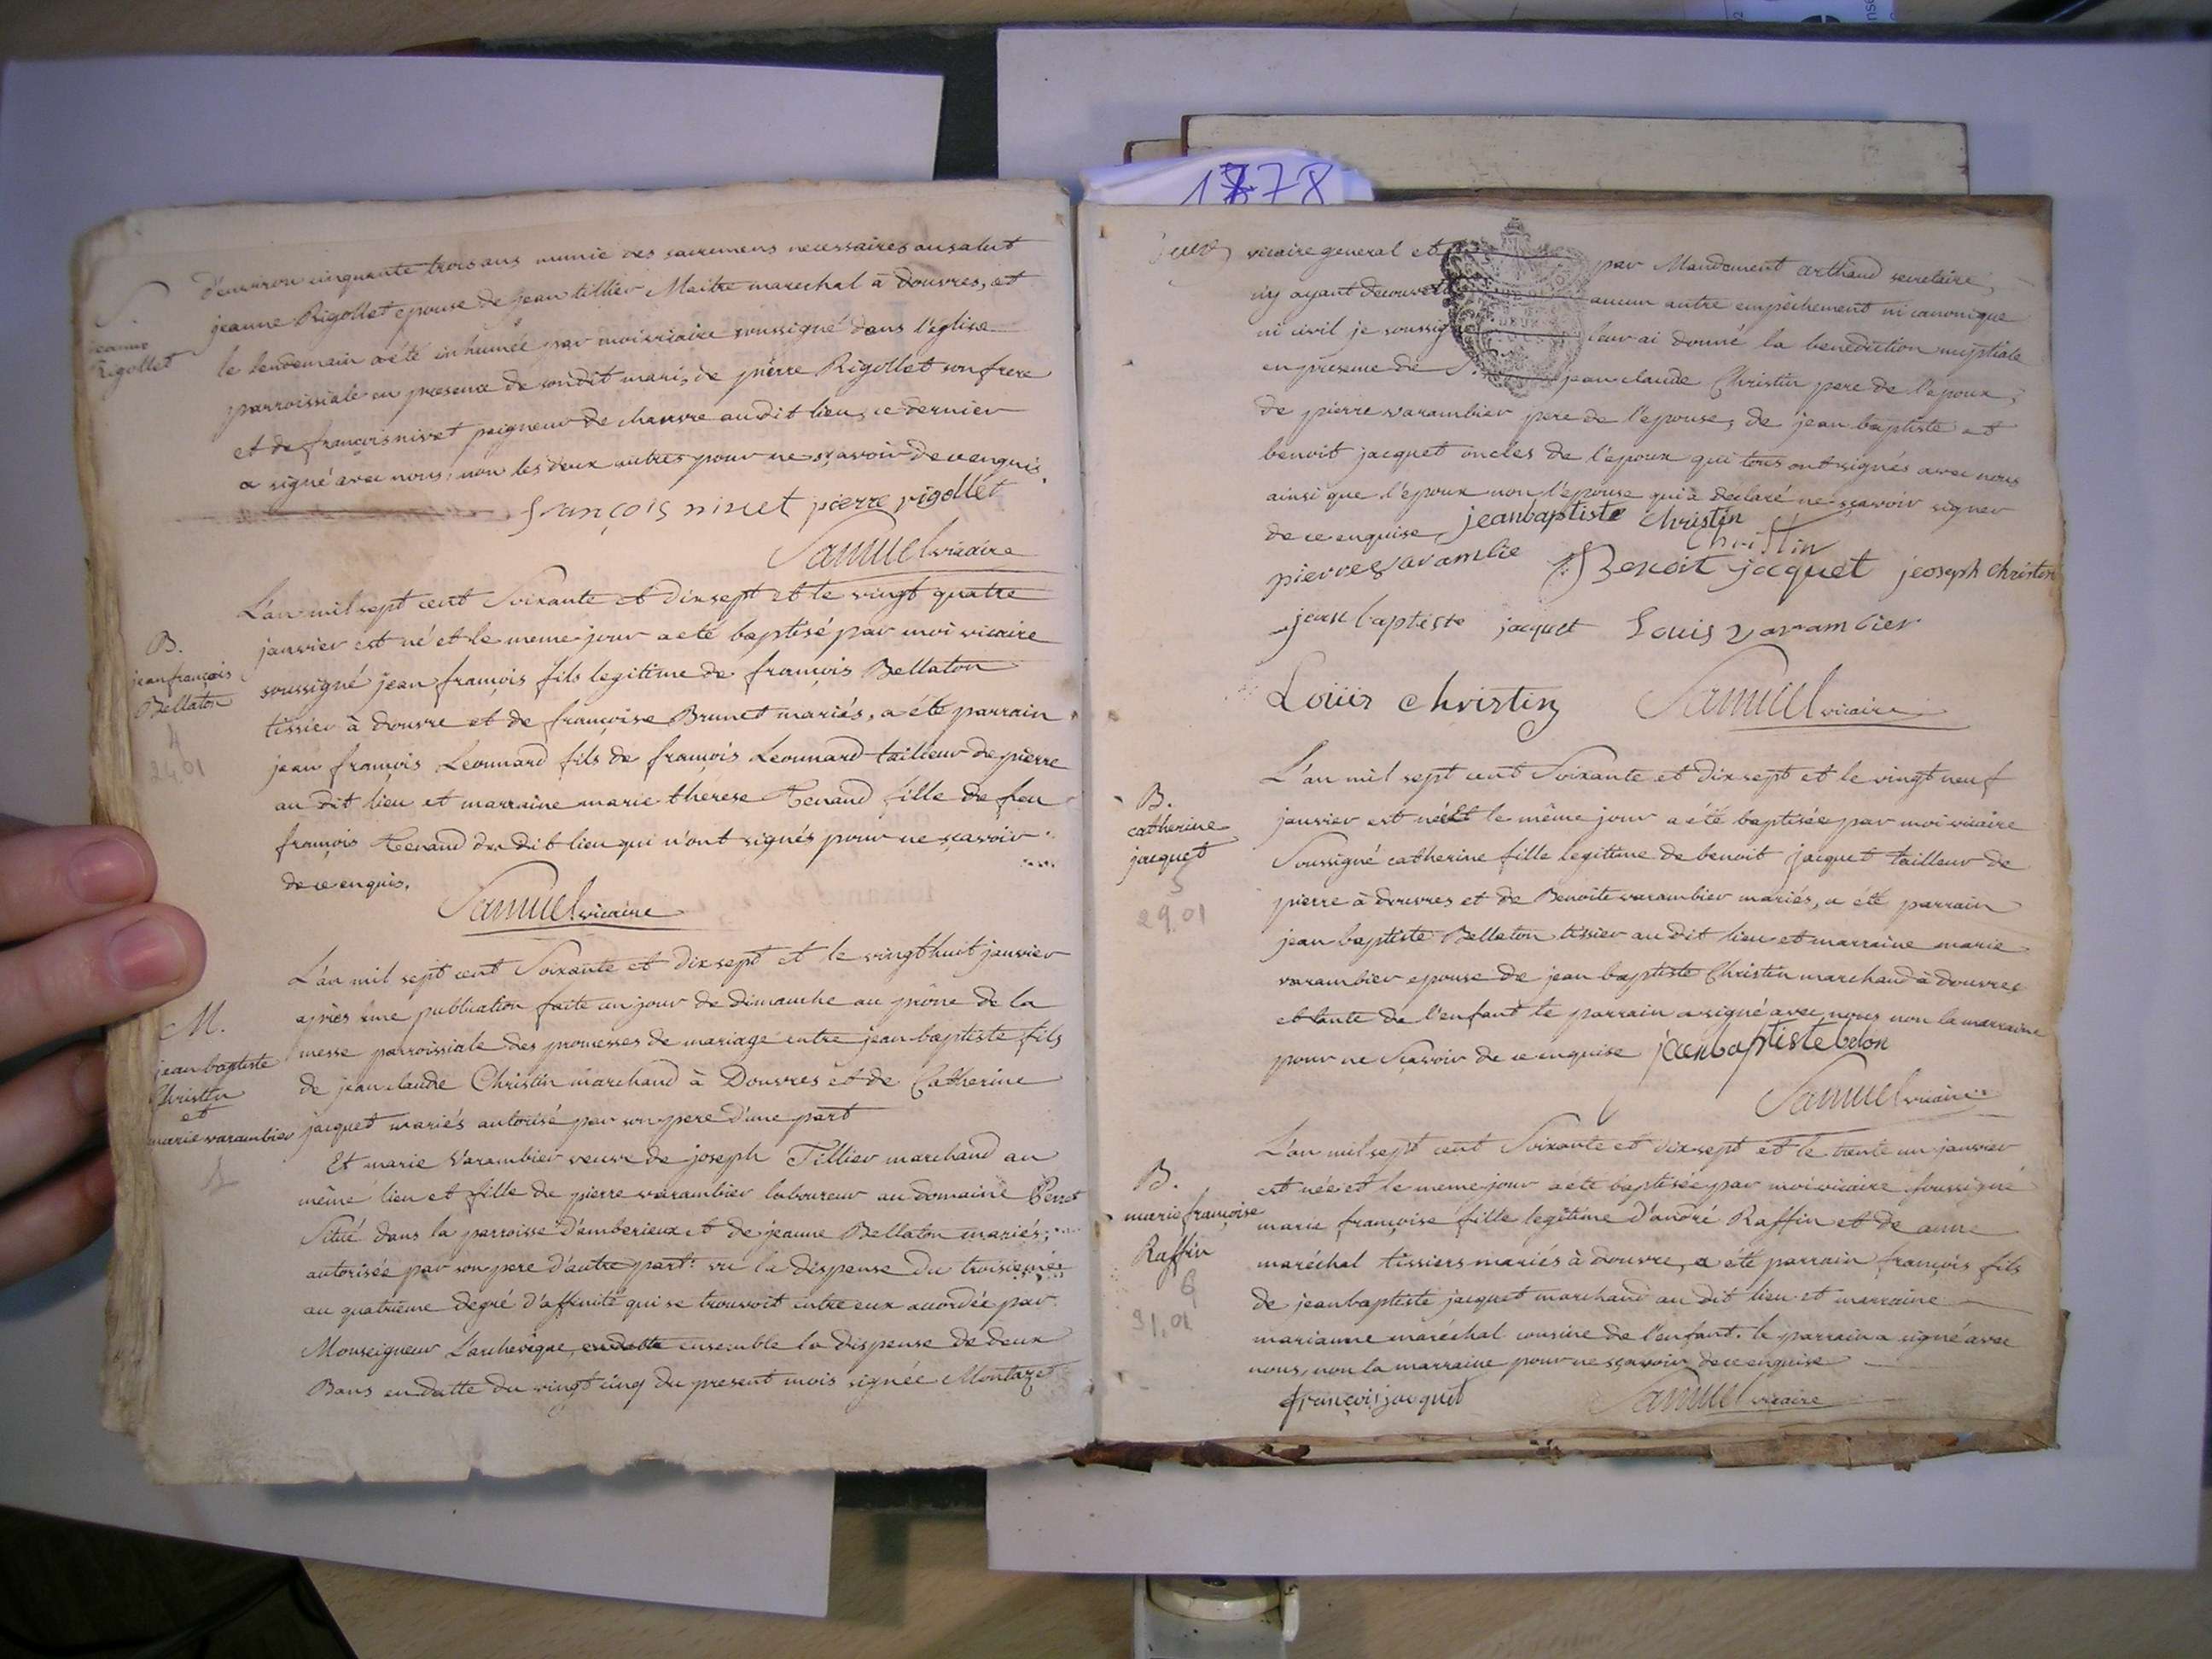 1778
S.
jeanne
Rigollet
d'environ cinquante trois ans munie des sacremens necessaires au salut
jeanne Rigollet epouse de jean tillier Maitre marechal à douvres, et
le lendemain a été inhumée par moi vicaire soussigné dans l'eglise
parroissiale en presence de sondit mari, de pierre Rigollet son frere
et de françois nivet peigneur de chanvre audit lieu, ce dernier
a signé avec nous, non les deux autres pour ne sçavoir de ce enquis.
françois nivet pierre rigollet
Samuel vicaire
B.
jean françois
Bellaton
4
24.01
L'an mil sept cent Soixante et dix sept et le vingt quatre
janvier est né et le meme jour a eté baptisé par moi vicaire
soussigné jean françois fils legitime de françois Bellaton
tissier à douvre et de françoise Brunet mariés, a été parrain
jean françois Leonnard fils de françois Leonnard tailleur de pierre
au dit lieu et marraine marie therese Tenand fille de feu
françois Tenand du dit lieu qui n'ont signés pour ne sçavoir
de ce enquis.
Samuel vicaire
M.
jean baptiste
Christin
et
marie varambier
L'an mil sept cent Soixante et dix sept et le vingt huit janvier
après une publication faite un jour de dimanche au prône de la
messe parroissiale des promesses de mariage entre jean baptiste fils
de jean claude Christin marchand à Douvres et de Catherine
jacquet mariés autorisé par son pere d'une part
Et marie Varambier veuve de joseph Tillier marchand au
même lieu et fille de pierre varambier laboureur au domaine Perret
Situé dans la parroisse d'amberieux et de jeanne Bellaton mariés;
autorisée par son pere d'autre part: vu la dispense du troisieme
au quatrieme degré d'affinité qui se trouvoit entre eux accordée par
Monseigneur L'archevêque, ensemble la dispense de deux
Bans en datte du vingt cinq du present mois signée Montazet
vicaire general et par Mandement arthaud secretaire,
n'y ayant decouvert aucun autre empêchement ni canonique
ni civil je soussigné leur ai donné la benediction nuptiale
en presence de jean claude Christin pere de l'epoux,
de pierre varambier pere de l'epouse, de jean baptiste et
benoit jacquet oncles de l'epoux qui tous ont signés avec nous
ainsi que l'epoux non l'epouse qui a declaré ne sçavoir signer
de ce enquise jean baptiste christin
Christin
pierre varambie Benoit jacquet jeoseph christin
jean baptiste jacquet Louis varambier
Loüis christin Samuel vicaire
B.
catherine
jacquet
5
29.01
L'an mil sept cent Soixante et dix sept et le vingt neuf
janvier est née et le même jour a été baptisée par moi vicaire
Soussigné catherine fille legitime de benoit jacquet tailleur de
pierre à douvres et de Benoite varambier mariés, a été parrain
jean baptiste Bellaton tissier au dit lieu et marraine marie
varambier epouse de jean baptiste Christin marchand à douvres
et tante de l'enfant le parrain a signé avec nous non la marraine
pour ne Sçavoir de ce enquise jean baptiste belon
Samuel vicaire
B.
marie françoise
Raffin
6
31.01
L'an mil sept cent Soixante et dix sept et le trente un janvier
est née et le meme jour a eté baptisée par moi vicaire soussigné
marie françoise fille legitime d'andré Raffin et de anne
maréchal tissiers mariés à douvre, a été parrain françois fils
de jean baptiste jacquet marchand au dit lieu et marraine
marianne maréchal cousine de l'enfant. le parrain a signé avec
nous, non la marraine pour ne sçavoir de ce enquise
françois jacquet Samuel vicaire